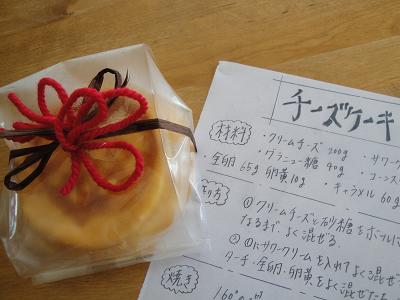 チーズケーキ
材料
・クリームチーズ 200g ・サワー
・グラニュー糖 40g ・コーンス
・全卵 65g 卵黄10g ・キャラメル 60g
り方
①クリームチーズと砂糖をボウルに
なるまで、よく混ぜる.
②①にサワークリームを入れてよく混ぜ
ターチ・全卵・卵黄
焼き
160℃の